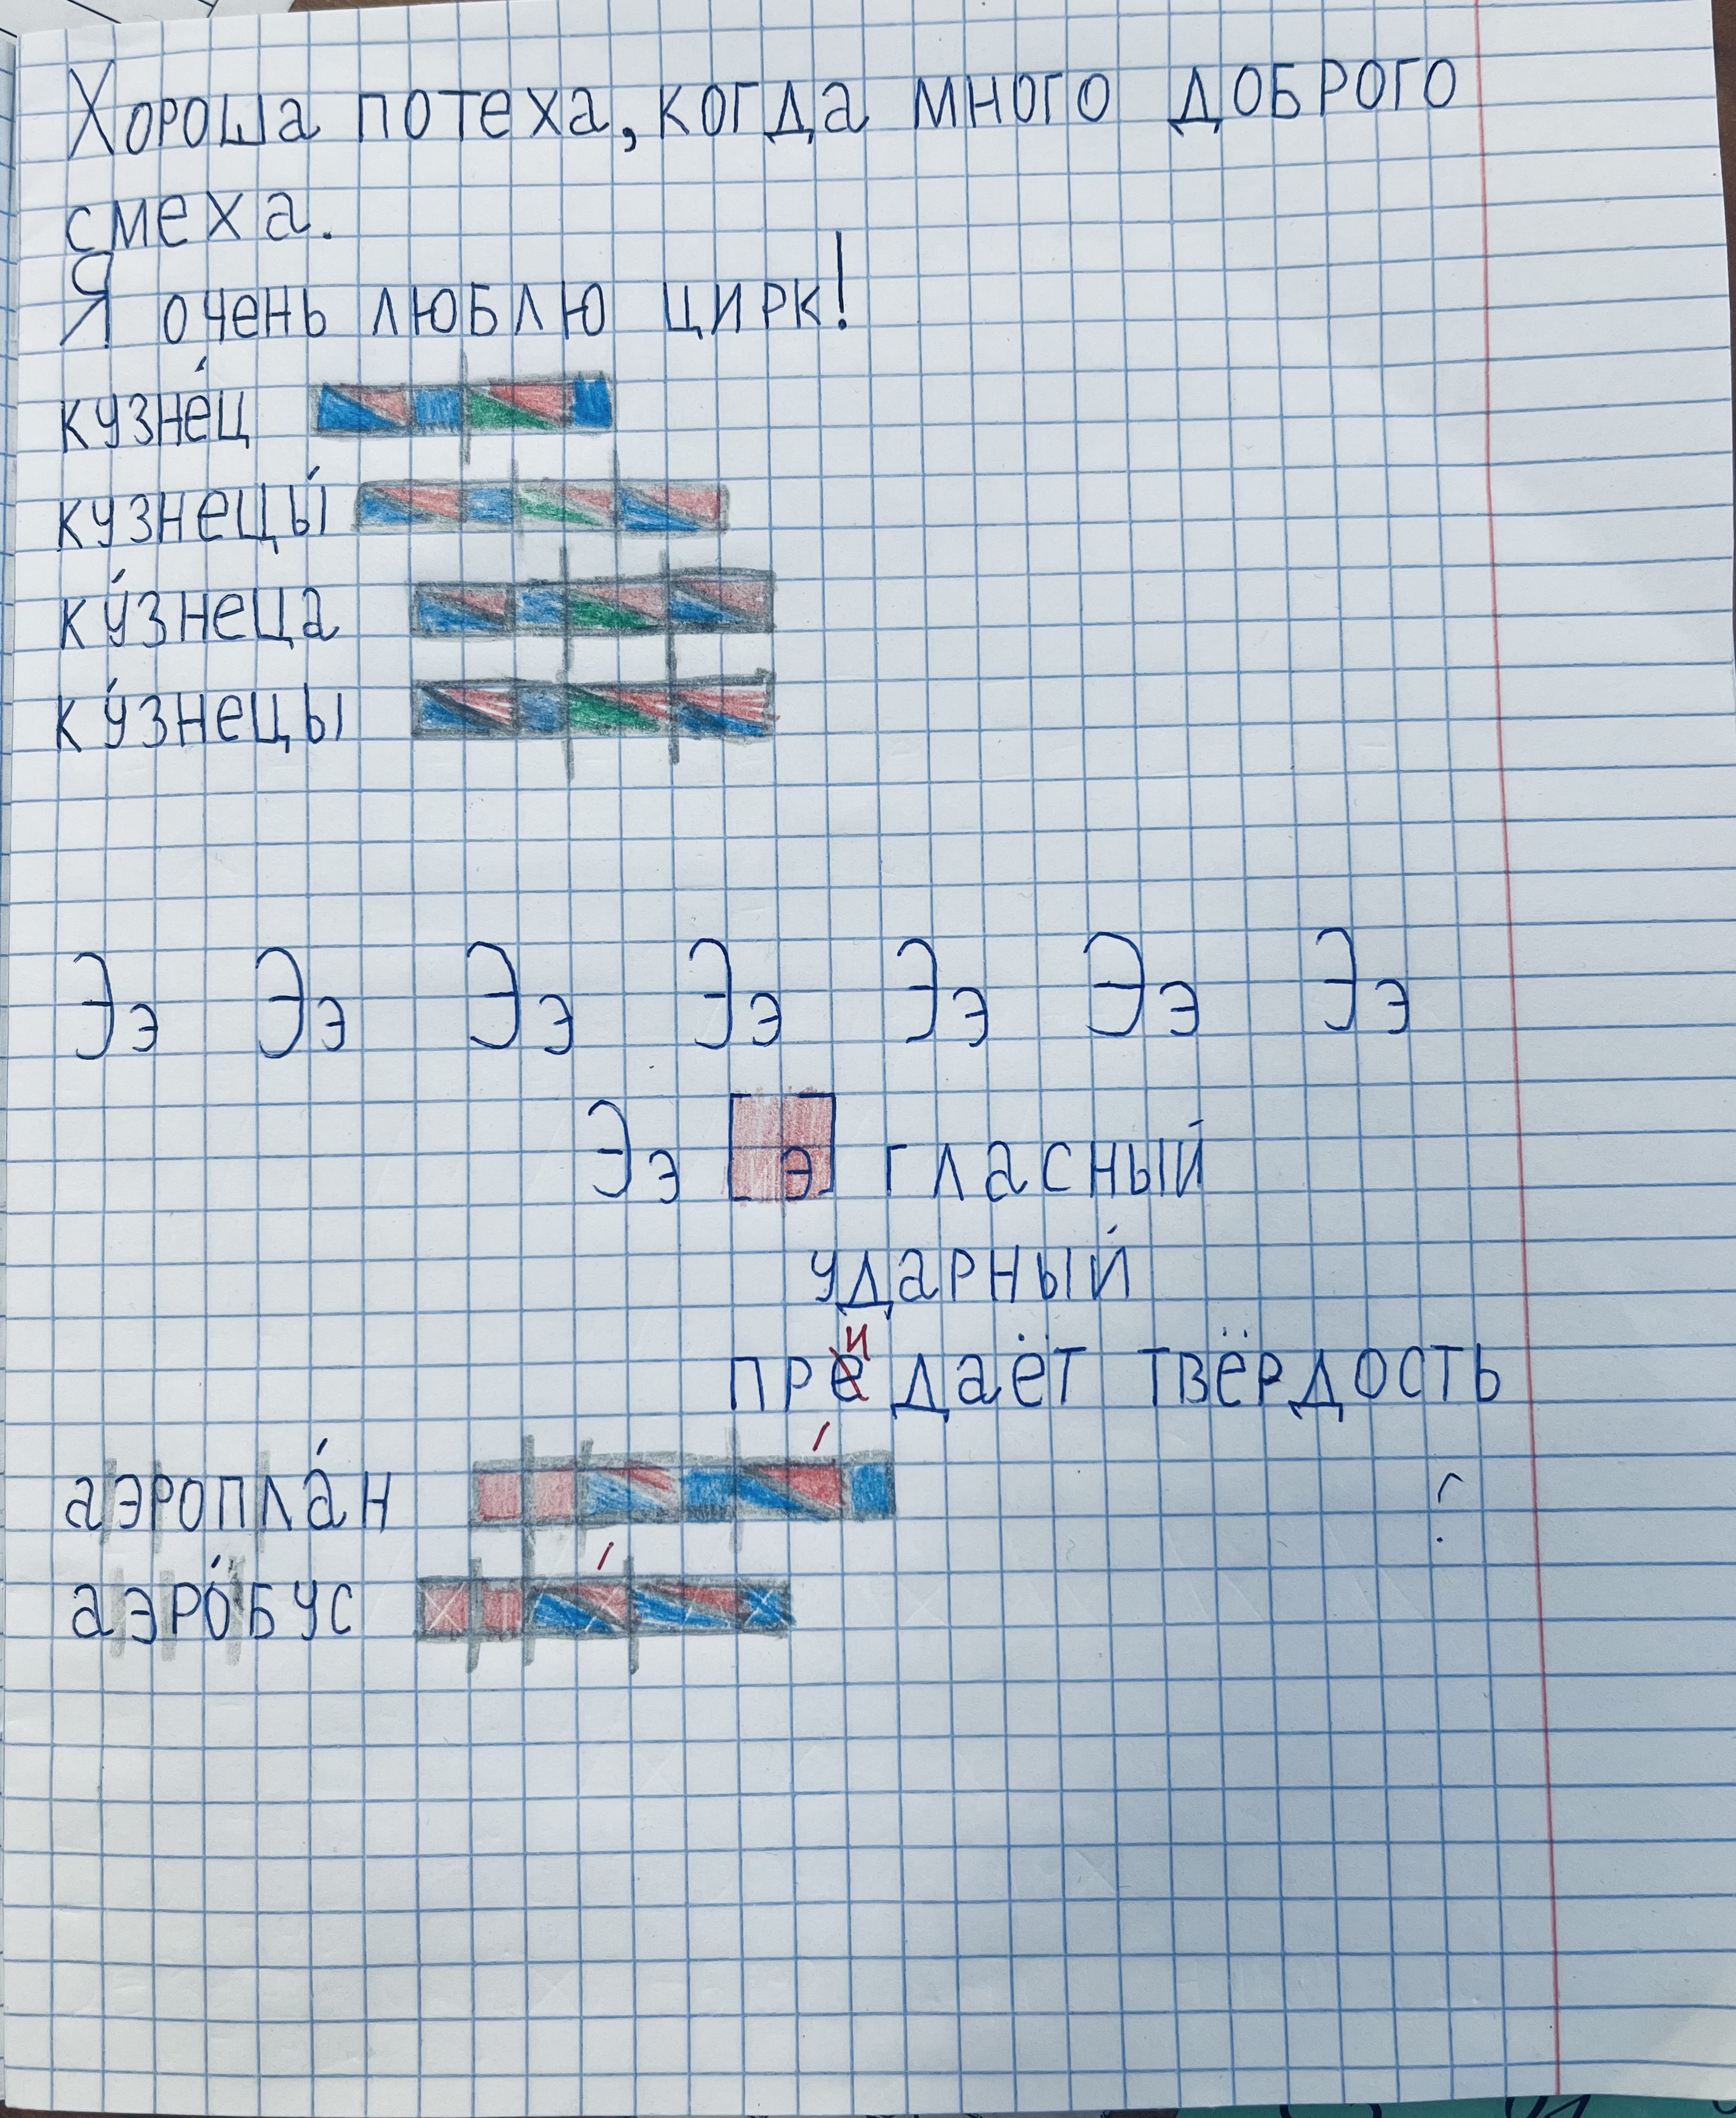 Хороша потеха, когда много доброго
смеха.
Я очень люблю цирк!
кузне́ц
кузнецы́
ку́знеца
ку́знецы
Ээ Ээ Ээ Ээ Ээ Ээ Ээ
Ээ [э] гласный
ударный
и
предаёт твёрдость
аэропла́н
аэро́бус